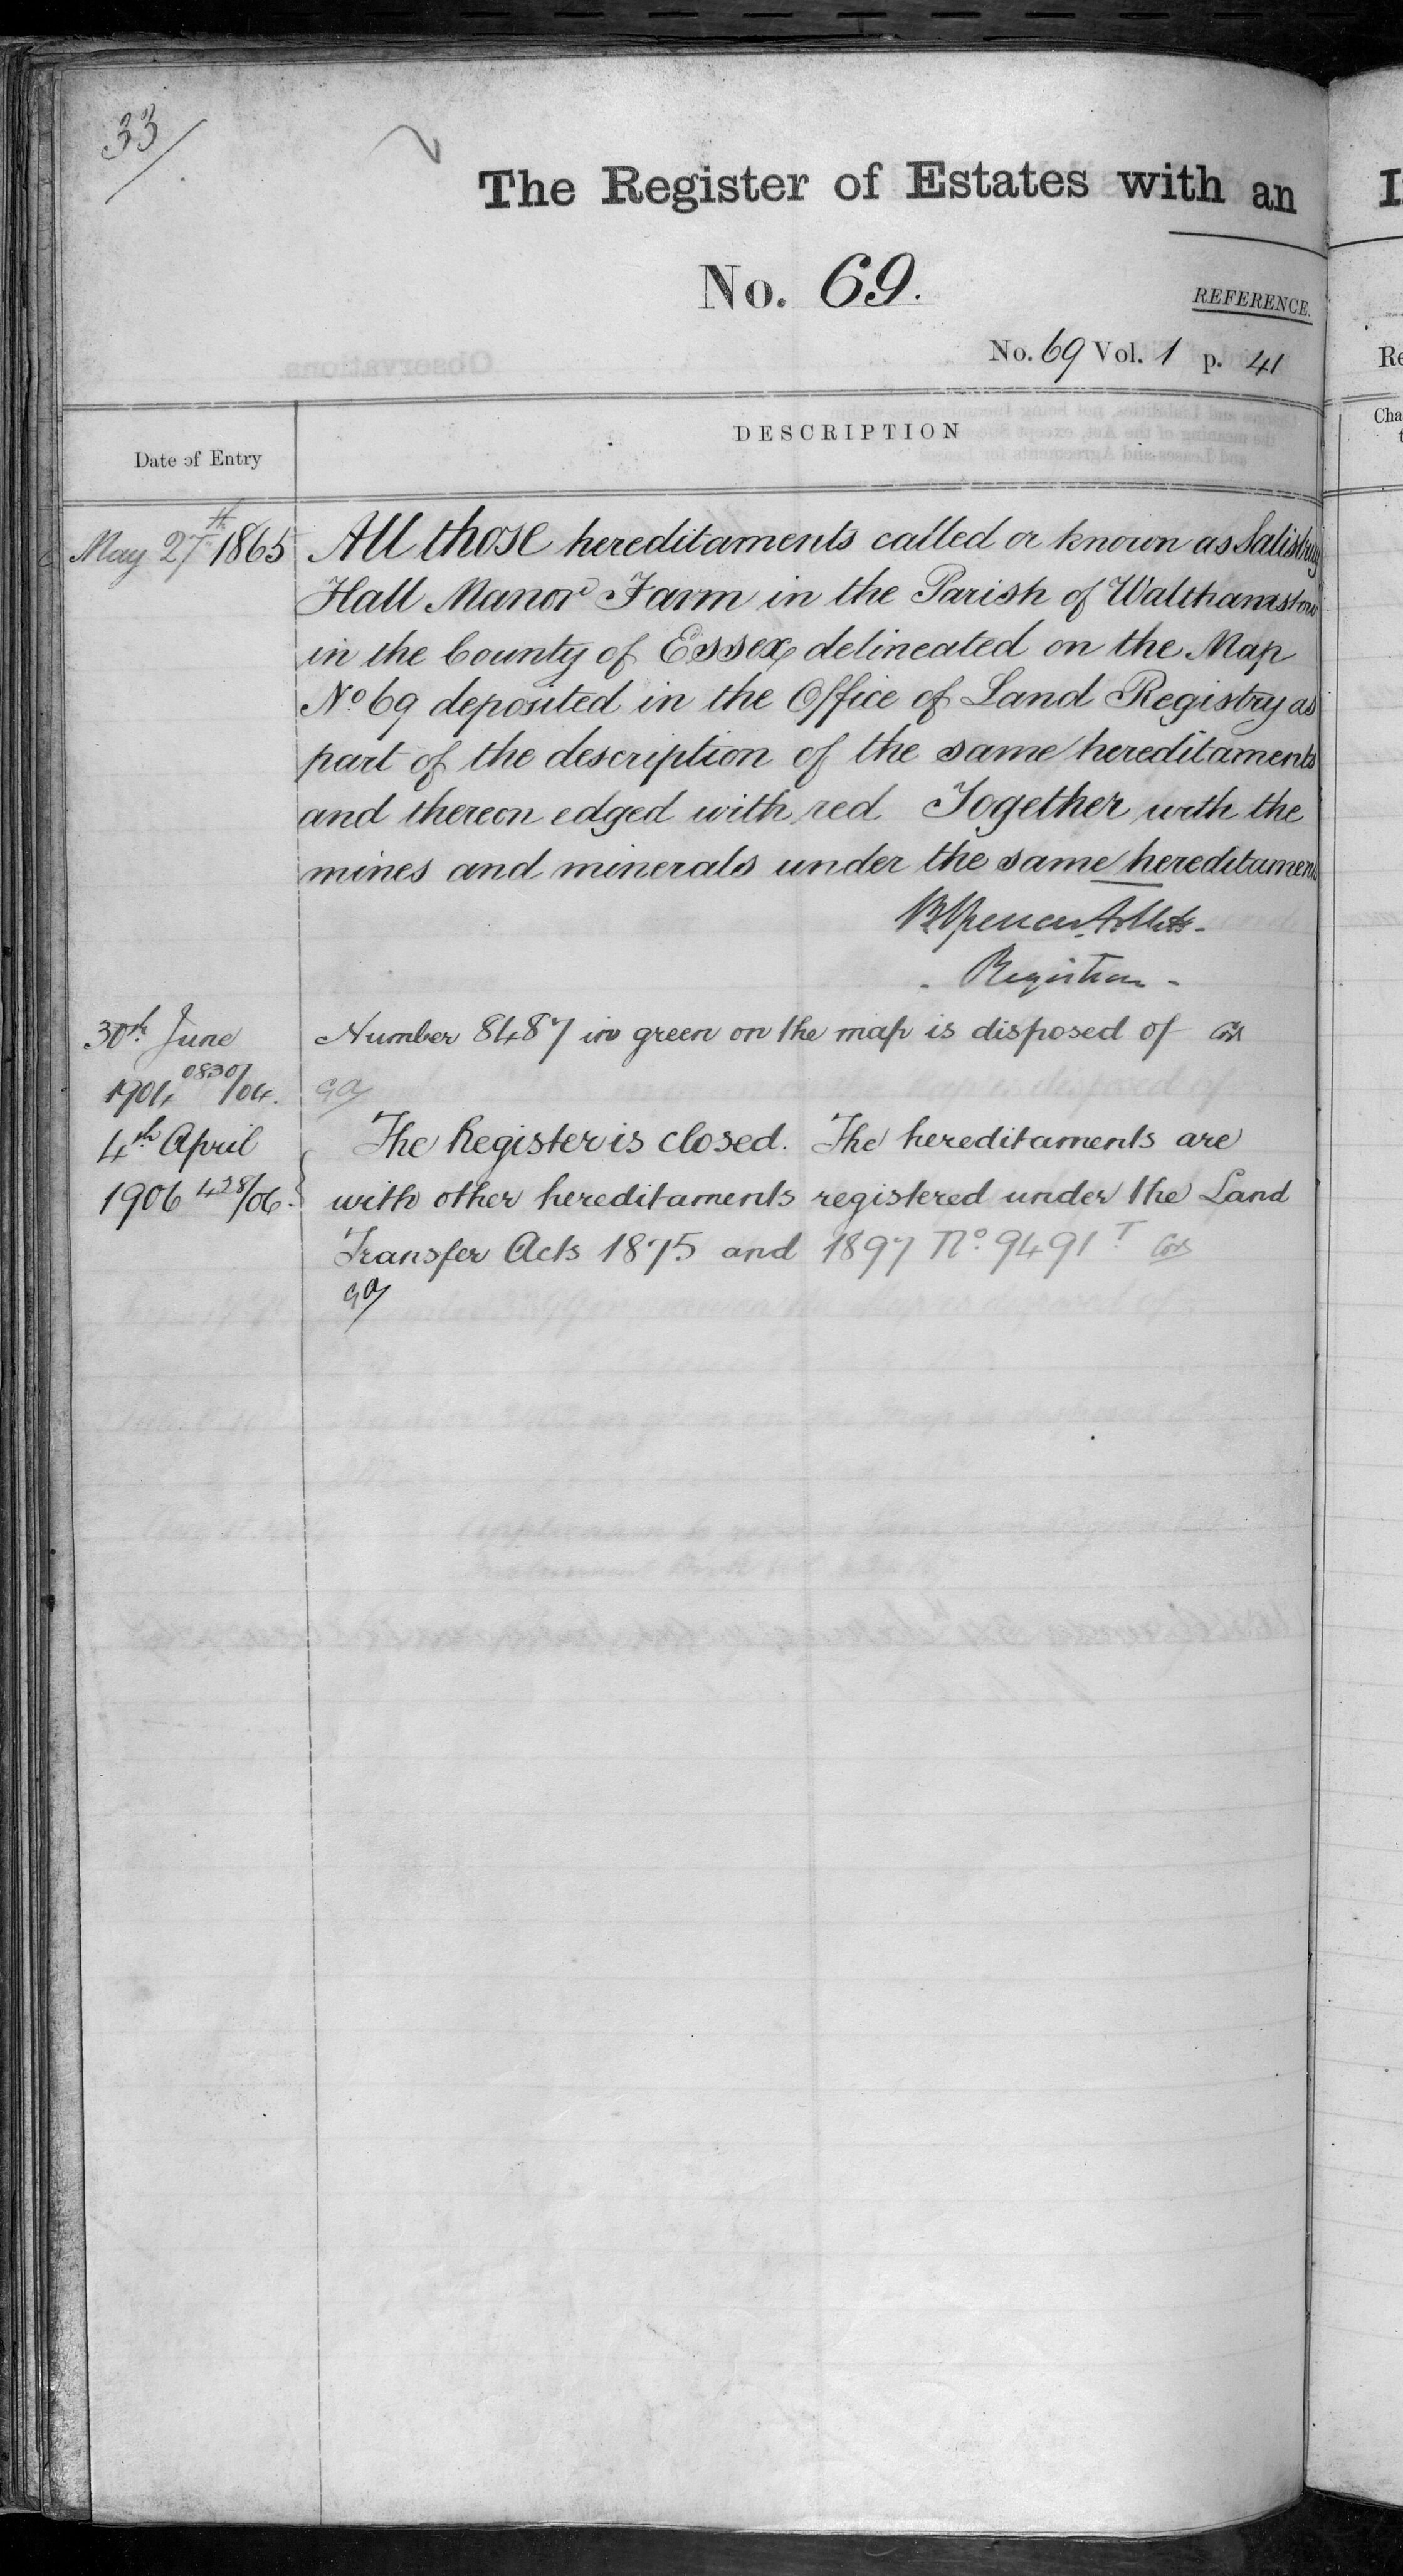 33
The Register of Estates with an
No. 69.
REFERENCE.
No. 69 Vol. 1 p. 41
Date of Entry
DESCRIPTION
May 27th 1865
All those hereditaments called or known as Salisbury
Hall Manor Farm in the Parish of Walthamstow
in the County of Essex delineated on the Map
No 69 deposited in the Office of Land Registry as
part of the description of the same hereditaments
and thereon edged with red Together with the
mines and minerals under the same hereditaments
Registrar
30th June
1904 0830/04.
Number 8487 in green on the map is disposed of
4th April
1906 428/06.
The Register is closed. The hereditaments are
with other hereditaments registered under the Land
Transfer Acts 1875 and 1897 No. 9491